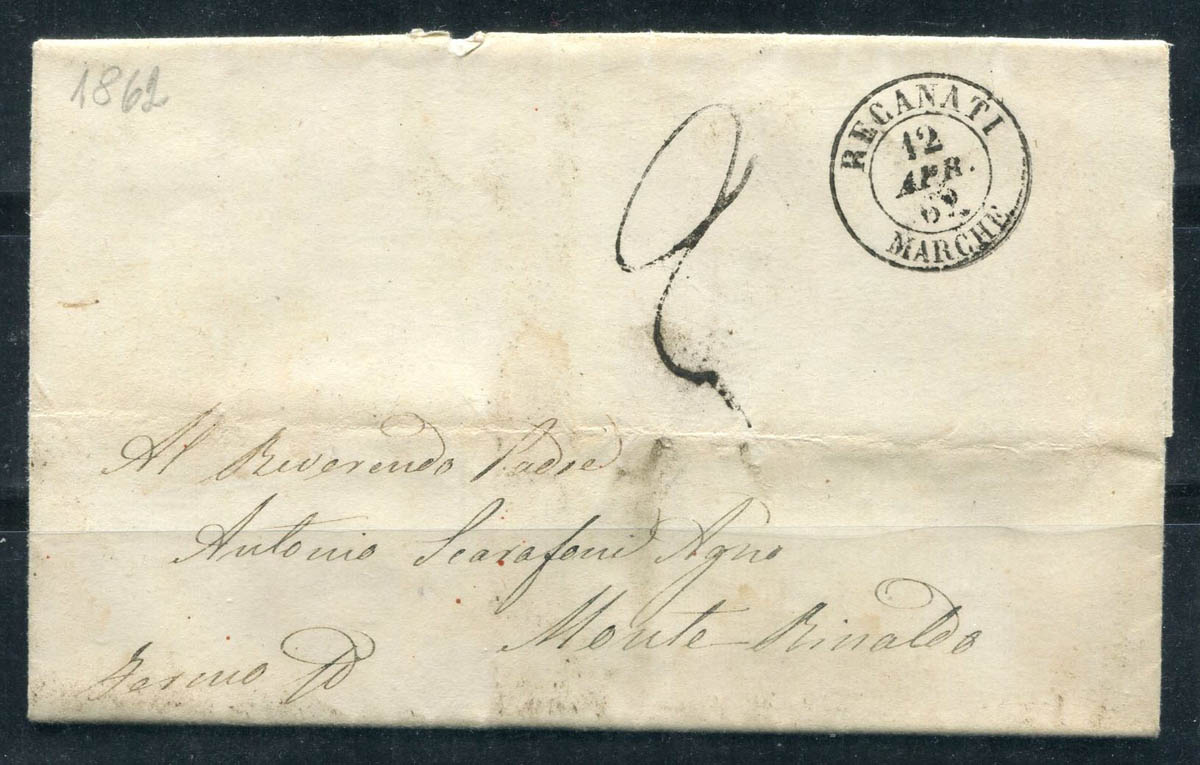 1862
RECANATI
12
APR.
62
MARCHE
Al Reverendo Padre
Antonio Scarafoni
Monte Rinaldo